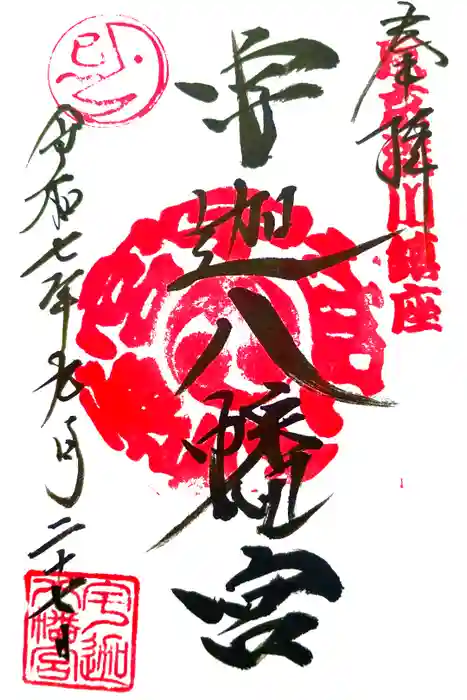 奉拝
山鎮座
宇迦八幡宮
巳
令和七年九月二十七日
宇迦
八幡宮